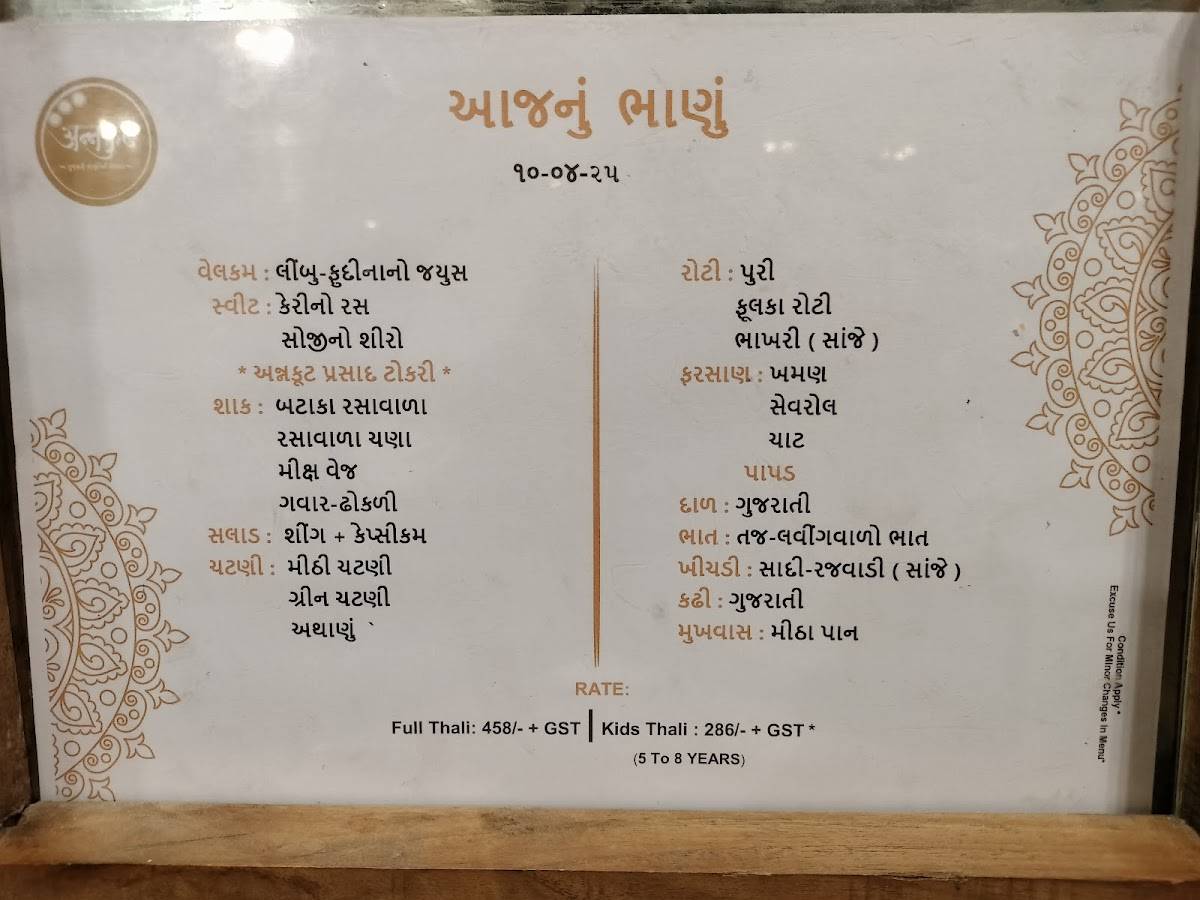 અન્નકુટ
આજનું ભાણું
૧૦-૦૪-૨૫
વેલકમ : લીંબુ-ફુદીનાનો જયુસ
સ્વીટ : કેરીનો રસ
સોજીનો શીરો
* અન્નકૂટ પ્રસાદ ટોકરી *
શાક : બટાકા રસાવાળા
રસાવાળા ચણા
મીક્ષ વેજ
ગવાર-ઢોકળી
સલાડ : શીંગ + કેપ્સીકમ
ચટણી : મીઠી ચટણી
ગ્રીન ચટણી
અથાણું `
રોટી : પુરી
ફૂલકા રોટી
ભાખરી ( સાંજે )
ફરસાણ : ખમણ
સેવરોલ
ચાટ
પાપડ
દાળ : ગુજરાતી
ભાત : તજ-લવીંગવાળો ભાત
ખીચડી : સાદી-રજવાડી ( સાંજે )
કઢી : ગુજરાતી
મુખવાસ : મીઠા પાન
RATE:
Full Thali: 458/- + GST | Kids Thali : 286/- + GST *
(5 To 8 YEARS)
Condition Apply *
Excuse Us For Minor Changes In Menu"